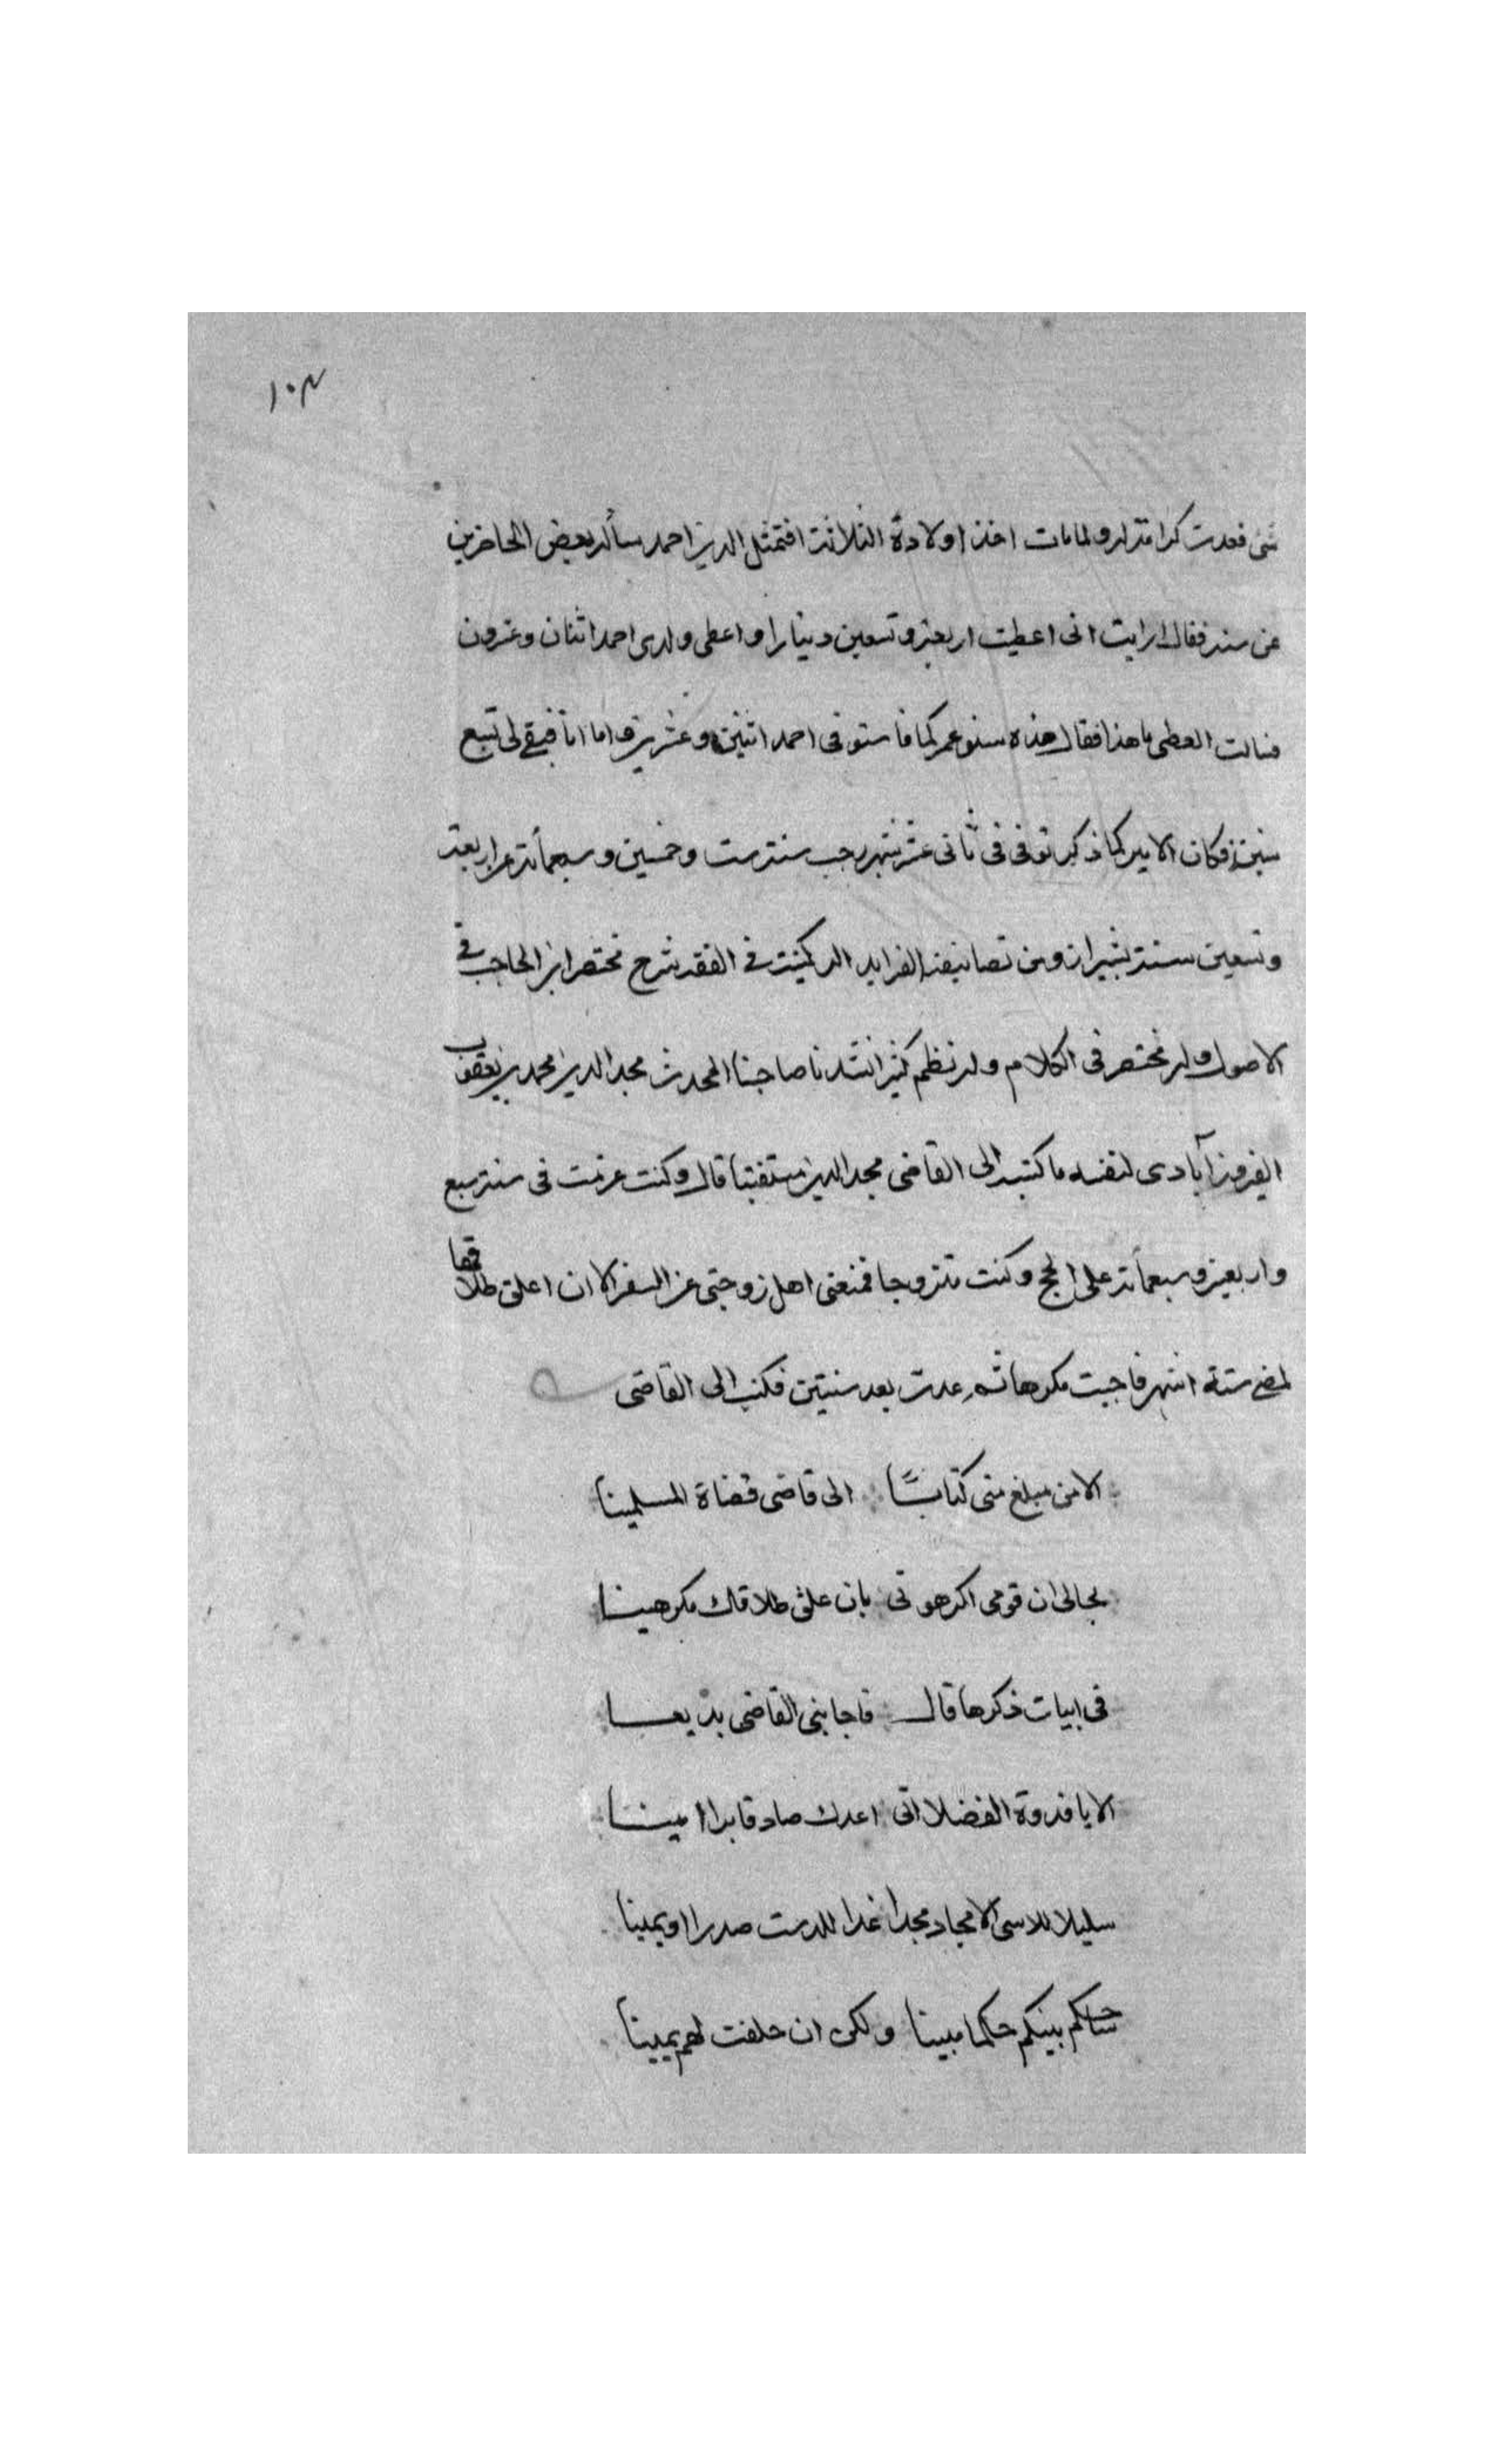 ١٠٣
شى فعدت كرامة له ولما مات اخذ اولاده الثلاثة الدين احمد سأله بعض الحاضرين
عن سنه فقال رايت انى اعطيت اربعة وتسعين دينارا واعطى ولدى احمد اثنان وعشرون
فسالت المعطى ما هذا فقال هذه سنو عمركما فاستوفى احمد اثنين وعشرين واما انا فبقى لى تسع
سنين فكان الامر كما ذكر توفى فى ثانى عشر شهر رجب سنة ست وخمسين وسبعمأة عن اربعة
وتسعين سنة بشيراز ومن تصانيفه الفرايد الركنية فى الفقه شرح مختصر ابن الحاجب فى
الاصول وله مختصر فى الكلام وله نظم كثير انشدنا صاحبنا المحدث مجد الدين محمد بن يعقوب
الفيروزآبادى لنفسه ما كتبه الى القاضى مجد الدين مستفتيا قال وكنت عزمت فى سنة سبع
واربعين وسبعمأة على الحج وكنت متزوجا فمنعنى اهل زوجتى عن السفر الا ان اعلق طلاقها
لمضى ستة اشهر فاجبت مكرها ثم عدت بعد سنتين فكتب الى القاضى
الا من مبلغ منى كتابًا الى قاضى قضاة المسلمينا
بحالى ان قومى اكرهونى بان علق طلاقك مكرهينا
فى ابيات ذكرها قال فاجابنى القاضى بديعا
الا يا قدوة الفضلا انى اعدك صادقا برا امينا
سليلا للاسى الامجاد مجدا غدا للدست صدرا او يمينا
ساحكم بينكم حكما مبينا ولكن ان حلفت لهم يمينا